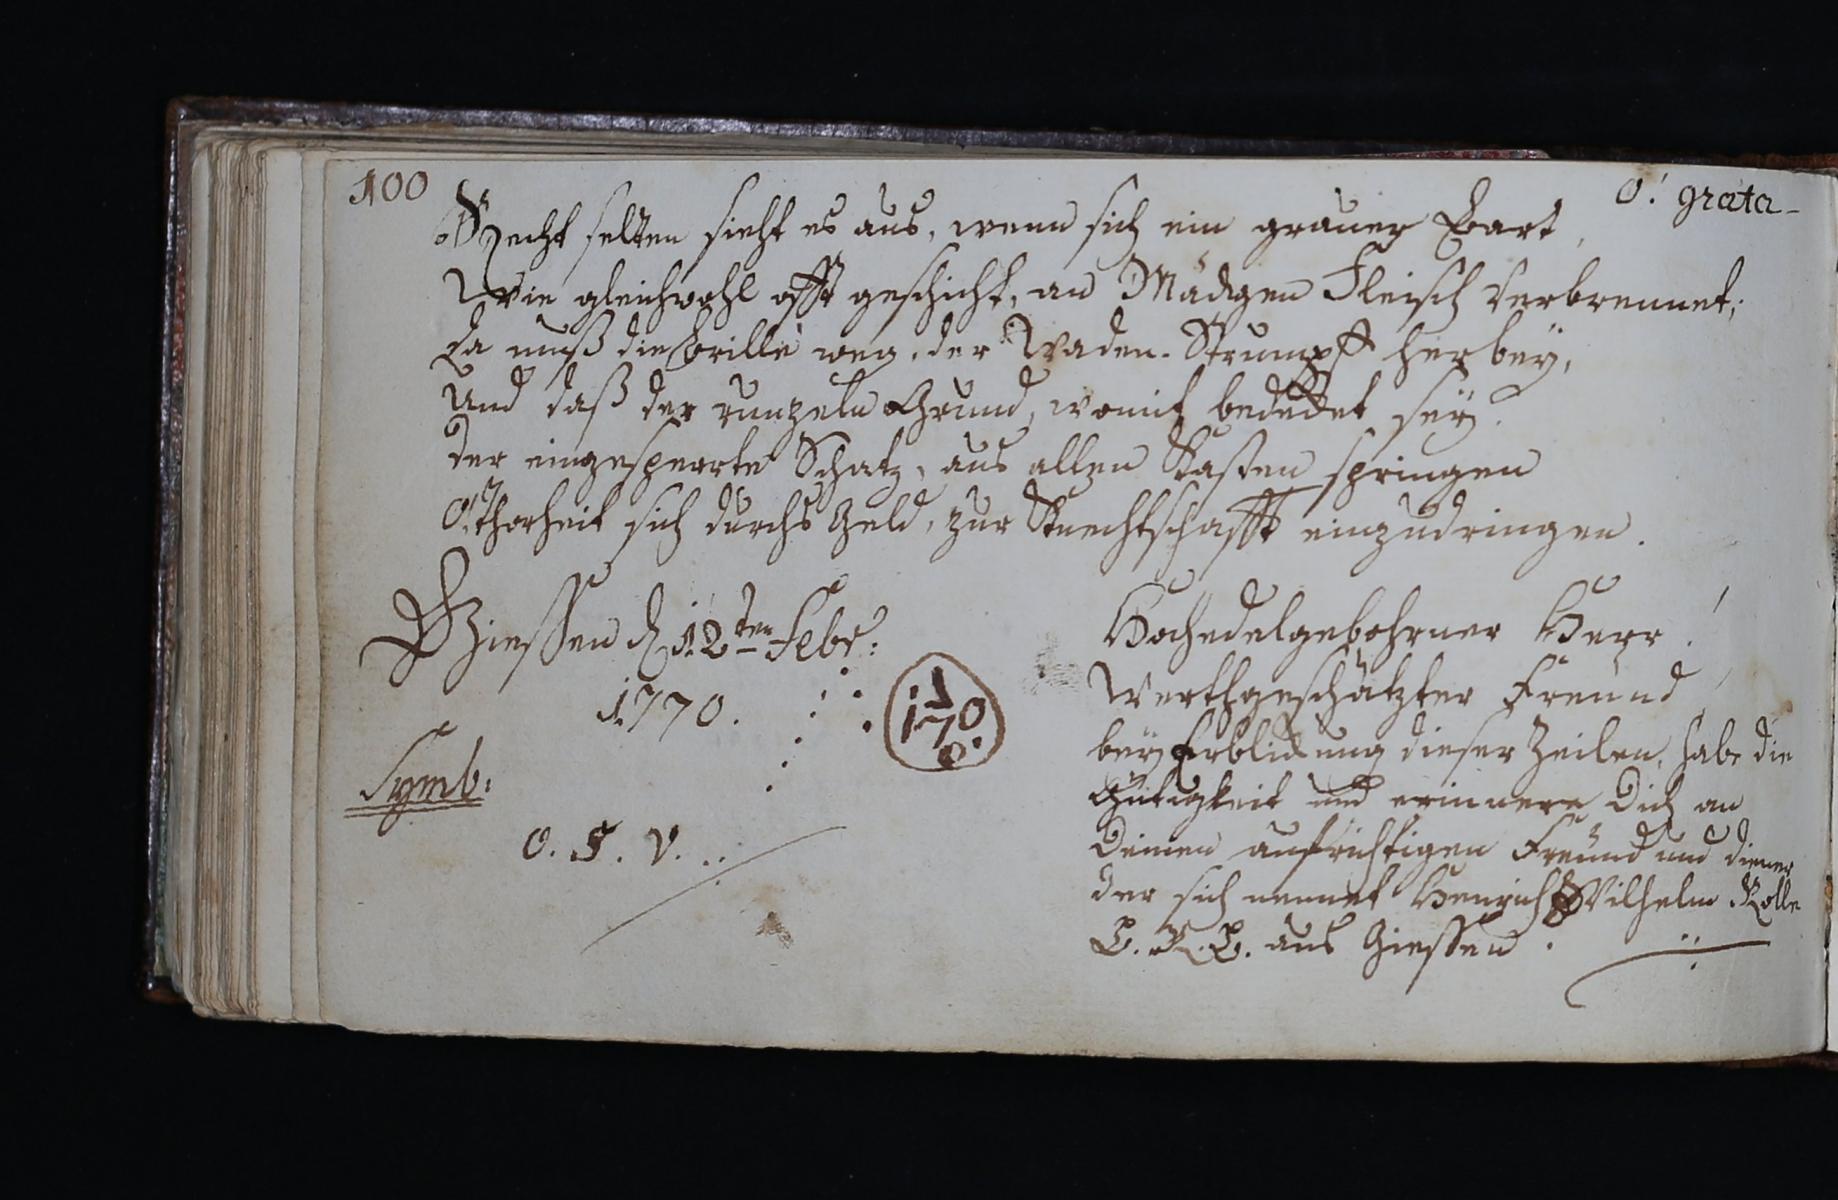 100
O! grata-
Recht selten sieht es aus, wenn sich ein grauer Bart,
Wie gleichwohl offt geschicht, an Mädgen Fleisch verbrennet;
Da muß die Brille weg, der Waden-Strumpff herbey,
Und daß der runzeln Grund, womit bedecket sey.
Der eingesperrte Schatz, aus allen Kasten springen
O! Thorheit sich durchs Geld, zur Knechtschafft einzudringen.
Giessen d. 12ten Febr:
1770.
1770.
Symb:
O. S. V.
Hochedelgebohrner Herr!
Werthgeschätzter Freund!
bey Erblickung dieser Zeilen, habe die
Gütigkeit und erinnere Dich an
Deinen aufrichtigen Freund und diener
der sich nennet Henrich Wilhelm Nolle
L. K. L. aus Giessen.